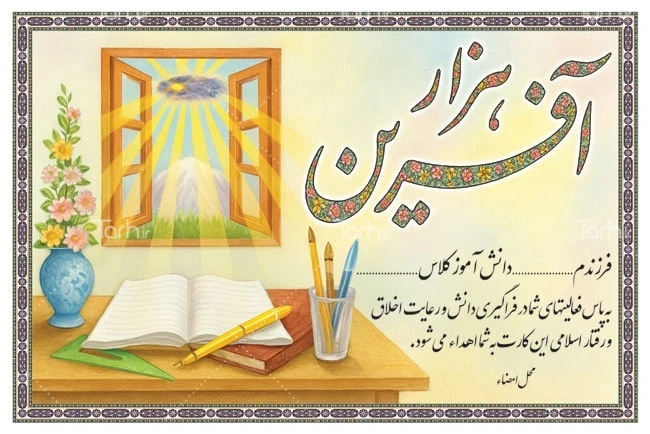 هزار آفرین
فرزندم...............دانش آموز کلاس...............
به پاس فعالیتهای شما در فراگیری دانش و رعایت اخلاق
و رفتار اسلامی این کارت به شما اهداء می شود.
محل امضاء
Tarh.ir
Tarh.ir